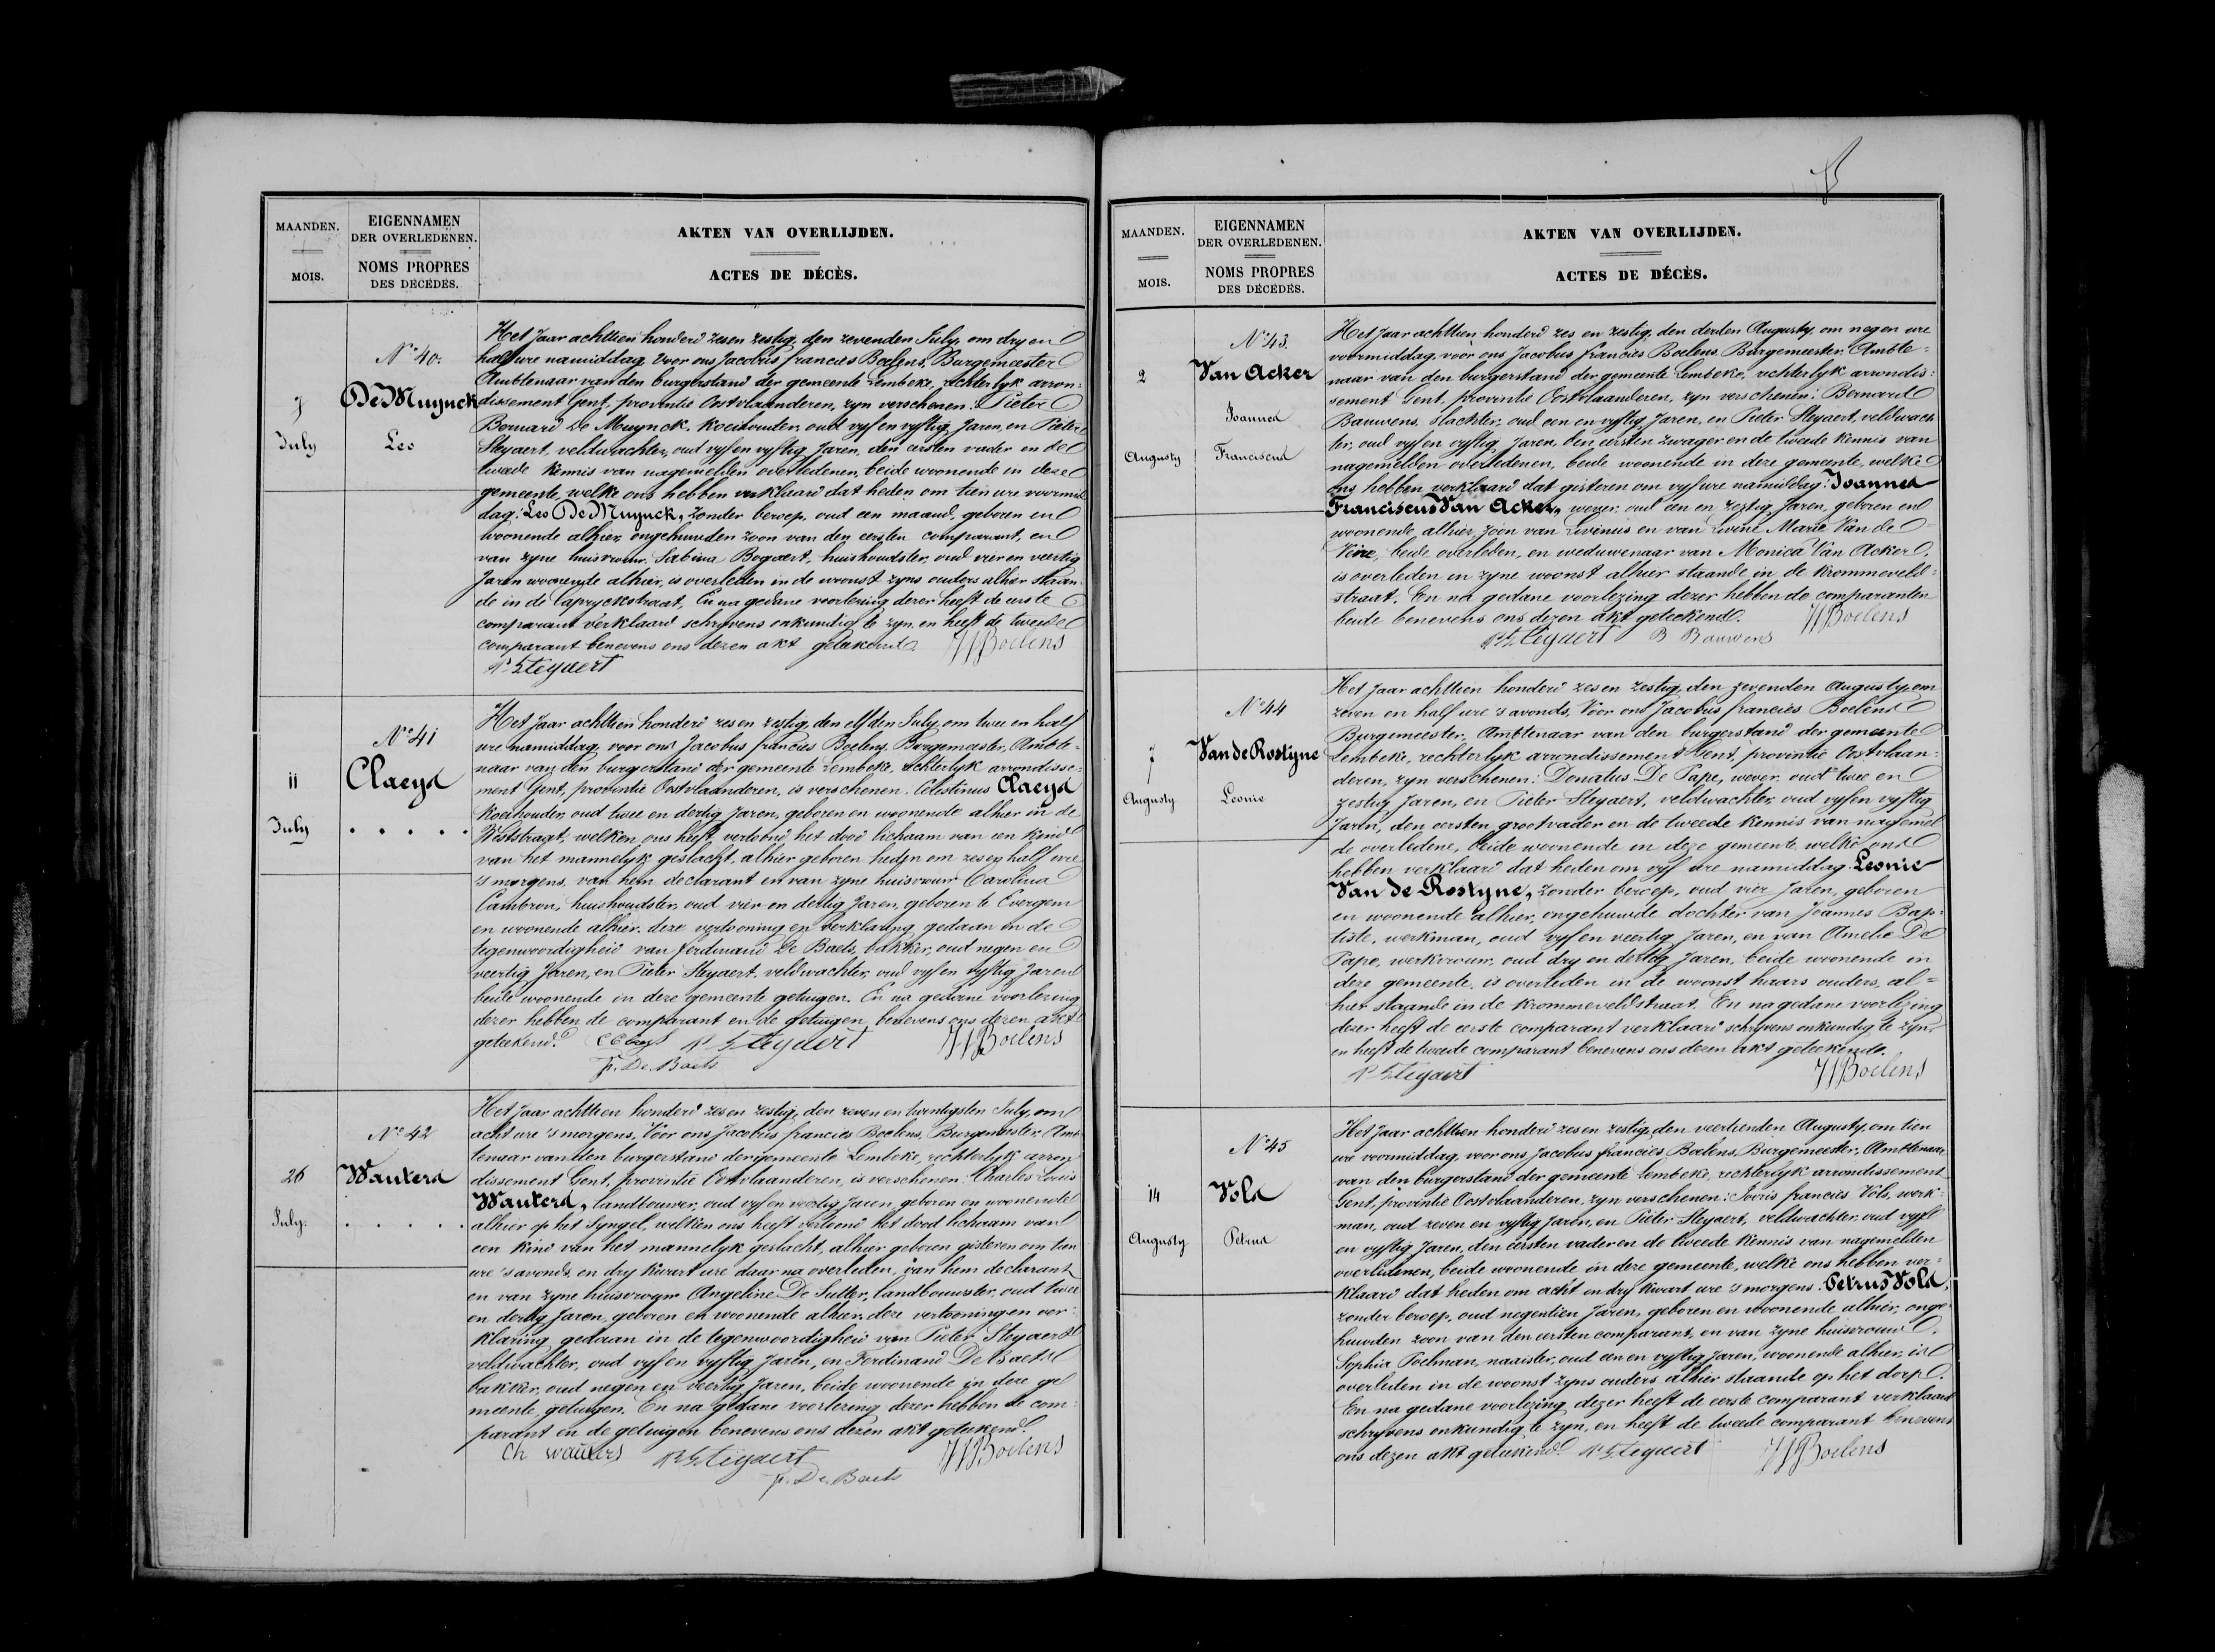 MAANDEN.
MOIS.
EIGENNAMEN
DER OVERLEDENEN.
NOMS PROPRES
DES DÉCÉDÉS.
AKTEN VAN OVERLIJDEN.
ACTES DE DÉCÈS.
N° 40.
7
July
De Muynck
Leo
Het Jaar achttien honderd zes en zestig, den zevenden July, om dry en
half ure namiddag, voor ons Jacobus francies Boelens, Burgemeester
Ambtenaar van den burgerstand der gemeente Lembeke, rechterlyk arron-
dissement Gent, provintie Oostvlaanderen, zyn verschenen: Pieter
Bernard De Muynck, koeihouder, oud vyf en vyftig Jaren, en Pieter
Steyaert, veldwachter, oud vyf en vyftig Jaren, den eersten vader en de
tweede kennis van nagemelden overledenen, beide woonende in deze
gemeente, welke ons hebben verklaard dat heden om tien ure voormid
dag: Leo De Muynck, zonder beroep, oud een maand, geboren en
woonende alhier, ongehuwden zoon van den eersten comparant, en
van zyne huisvrouw Sabina Bogaert, huishoudster, oud vier en veertig
Jaren woonende alhier, is overleden in de woonst zyns ouders alhier staan-
de in de Capryckstraat, En na gedane voorlezing dezer heeft de eerste
comparant verklaard schryvens onkundig te zyn, en heeft de tweede
comparant benevens ons dezen akt geteekend. JJBoelens
P Steyaert
N° 41
11
July
Claeys
. . . . .
Het Jaar achttien honderd zes en zestig, den elfden July, om twee en half
ure namiddag, voor ons Jacobus francies Boelens, Burgemeester, Ambte-
naar van den burgerstand der gemeente Lembeke, rechterlyk arrondisse-
ment Gent, provintie Oostvlaanderen, is verschenen: Celestinus Claeys
koeihouder, oud twee en dertig Jaren, geboren en woonende alhier in de
Weststraat, welken ons heeft vertoond het dood lichaam van een kind
van het mannelyk geslacht, alhier geboren heden om zes en half ure
's morgens, van hem declarant en van zyne huisvrouw Carolina
Cambron, huishoudster, oud vier en dertig Jaren, geboren te Evergem
en woonende alhier. deze vertooning en verklaring gedaan in de
tegenwoordigheid van ferdinand De Baets, bakker, oud negen en
veertig Jaren, en Pieter Steyaert, veldwachter, oud vyf en vyftig Jaren
beide woonende in deze gemeente getuigen. En na gedane voorlezing
dezer hebben de comparant en de getuigen benevens ons dezen akt
geteekend. P Steyaert JJBoelens
F. De Baets
N° 42
26
July.
Wauters
. . . . .
Het Jaar achttien honderd zes en zestig, den zeven en twintigsten July, om
acht ure 's morgens, Voor ons Jacobus francies Boelens, Burgemeester, Amb-
tenaar van den burgerstand der gemeente Lembeke, rechterlyk arron
dissement Gent, provintie Oostvlaanderen, is verschenen: Charles Louis
Wauters, landbouwer, oud vyf en veertig Jaren, geboren en woonende
alhier op het Syngel, welken ons heeft vertoond het dood lichaam van
een kind van het mannelyk geslacht, alhier geboren gisteren om tien
ure 's avonds, en dry kwart ure daar na overleden, van hem declarant
en van zyne huisvrouw Angeline De Sutter, landbouwster, oud twee
en dertig Jaren, geboren en woonende alhier, deze vertooning en ver-
klaring gedaan in de tegenwoordigheid van Pieter Steyaert
veldwachter, oud vyf en vyftig Jaren, en Ferdinand De Baets
bakker, oud negen en veertig Jaren, beide woonende in deze ge
meente, getuigen. En na gedane voorlezing dezer hebben de com-
parant en de getuigen benevens ons dezen akt geteekend.
Ch Wauters P Steyaert JJBoelens
F. De Baets
MAANDEN.
MOIS.
EIGENNAMEN
DER OVERLEDENEN.
NOMS PROPRES
DES DÉCÉDÉS.
AKTEN VAN OVERLIJDEN.
ACTES DE DÉCÈS.
N° 43.
2
Augusty
Van Acker
Joannes
Franciscus
Het Jaar achttien honderd zes en zestig, den derden Augusty, om negen ure
voormiddag, voor ons Jacobus francies Boelens, Burgemeester, Ambte-
naar van den burgerstand der gemeente Lembeke, rechterlyk arrondis-
sement Gent, provintie Oostvlaanderen, zyn verschenen: Bernard
Bauwens, Slachter, oud een en vyftig Jaren, en Pieter Steyaert, veldwach-
ter, oud vyf en vyftig Jaren, den eersten zwager en de tweede kennis van
nagemelden overledenen, beide woonende in deze gemeente, welke
ons hebben verklaard dat gisteren om vyf ure namiddag: Joannes
Franciscus Van Acker, wever, oud een en zestig Jaren, geboren en
woonende alhier, zoon van Livinus en van Livine Marie Van de
Vire, beide overleden, en weduwenaar van Monica Van Acker,
is overleden in zyne woonst alhier staande in de Krommeveld-
straat. En na gedane voorlezing dezer hebben de comparanten
beide benevens ons dezen akt geteekend. JJBoelens
P Steyaert B Bauwens
N° 44
7
Augusty
Van de Rostyne
Leonie
Het Jaar achttien honderd zes en zestig, den zevenden Augusty, om
zeven en half ure 's avonds, Voor ons Jacobus francies Boelens
Burgemeester, Ambtenaar van den burgerstand der gemeente
Lembeke, rechterlyk arrondissement Gent, provintie Oostvlaan-
deren, zyn verschenen: Donatus De Pape, wever, oud twee en
zestig Jaren, en Pieter Steyaert, veldwachter, oud vyf en vyftig
Jaren, den eersten grootvader en de tweede kennis van nagemel
de overledene, beide woonende in deze gemeente, welke ons
hebben verklaard dat heden om vyf ure namiddag: Leonie
Van de Rostyne, zonder beroep, oud vier Jaren, geboren
en woonende alhier, ongehuwde dochter van Joannes Bap-
tiste, werkman, oud vyf en veertig Jaren, en van Amelie De
Pape, werkvrouw, oud dry en dertig Jaren, beide woonende in
deze gemeente, is overleden in de woonst haars ouders, al=
hier staande in de Krommeveldstraat. En na gedane voorlezing
dezer heeft de eerste comparant verklaard schryvens onkundig te zyn,
en heeft de tweede comparant benevens ons dezen akt geteekend.
P Steyaert JJBoelens
N° 45
14
Augusty
Vols
Petrus
Het Jaar achttien honderd zes en zestig, den veertienden Augusty, om tien
ure voormiddag, voor ons Jacobus francies Boelens, Burgemeester, Ambtenaar
van den burgerstand der gemeente Lembeke, rechterlyk arrondissement
Gent, provintie Oostvlaanderen, zyn verschenen: Jooris francies Vols, werk-
man, oud zeven en vyftig Jaren, en Pieter Steyaert, veldwachter, oud vyf
en vyftig Jaren, den eersten vader en de tweede kennis van nagemelden
overledenen, beide woonende in deze gemeente, welke ons hebben ver-
klaard dat heden om acht en dry kwart ure 's morgens: Petrus Vols,
zonder beroep, oud negentien Jaren, geboren en woonende alhier, onge-
huwden zoon van den eersten comparant, en van zyne huisvrouw
Sophia Poelman, naaister, oud een en vyftig Jaren, woonende alhier, is
overleden in de woonst zyns ouders alhier staande op het dorp.
En na gedane voorlezing dezer heeft de eerste comparant verklaard
schryvens onkundig te zyn, en heeft de tweede comparant benevens
ons dezen akt geteekend. P Steyaert JJBoelens